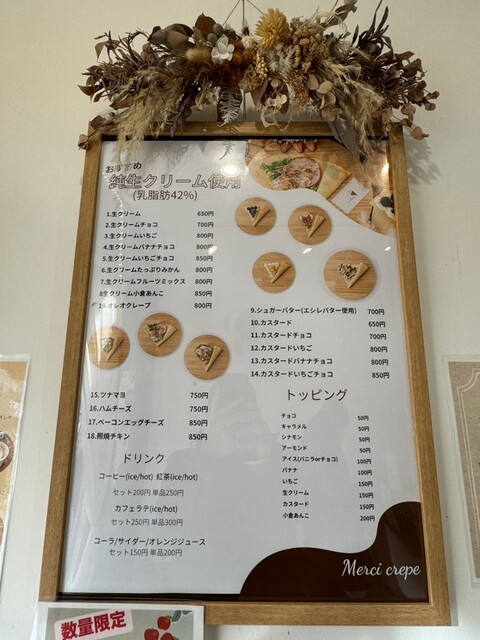 おすすめ
純生クリーム使用
(乳脂肪42%)
1.生クリーム 650円
2.生クリームチョコ 700円
3.生クリームいちご 800円
4.生クリームバナナチョコ 800円
5.生クリームいちごチョコ 850円
6.生クリームたっぷりみかん 800円
7.生クリームフルーツミックス 800円
8生クリーム小倉あんこ 850円
19.オレオクレープ 800円
9.シュガーバター(エシレバター使用) 700円
10.カスタード 650円
11.カスタードチョコ 700円
12.カスタードいちご 800円
13.カスタードバナナチョコ 800円
14.カスタードいちごチョコ 850円
15.ツナマヨ 750円
16.ハムチーズ 750円
17.ベーコンエッグチーズ 850円
18.照焼チキン 850円
ドリンク
コーヒー(ice/hot) 紅茶(ice/hot)
セット200円 単品250円
カフェラテ(ice/hot)
セット250円 単品300円
コーラ/サイダー/オレンジジュース
セット150円 単品200円
トッピング
チョコ 50円
キャラメル 50円
シナモン 50円
アーモンド 50円
アイス(バニラorチョコ) 100円
バナナ 100円
いちご 150円
生クリーム 150円
カスタード 150円
小倉あんこ 200円
Merci crepe
数量限定